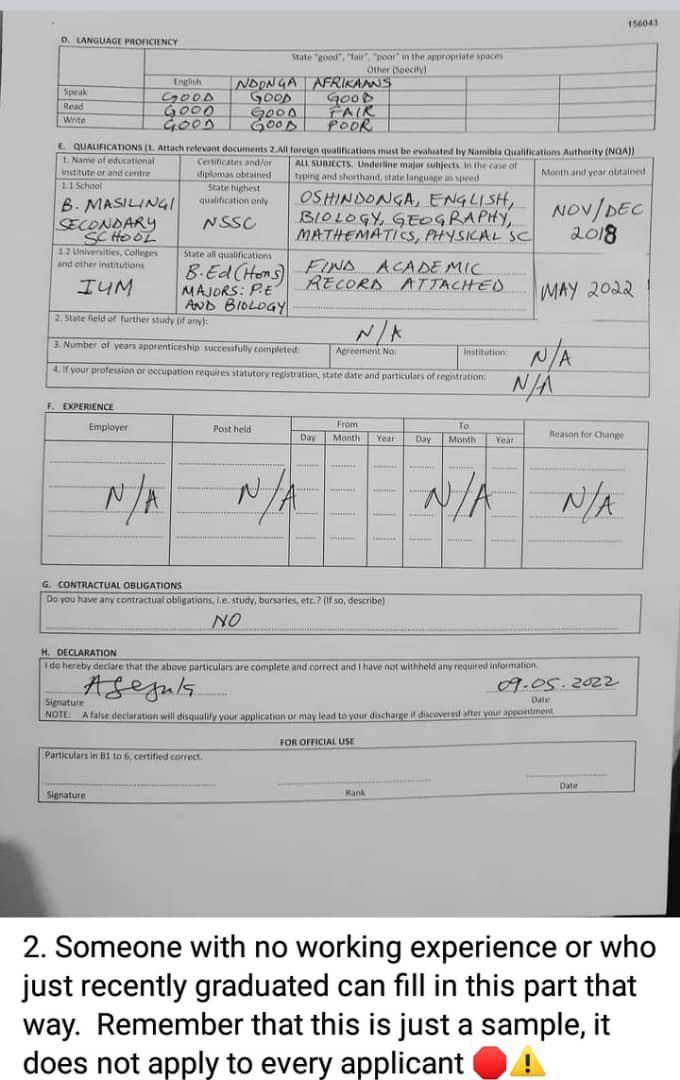 156043
D. LANGUAGE PROFICIENCY
State "good", "fair", "poor" in the appropriate spaces
Other (Specify)
English NDONGA AFRIKAANS
Speak GOOD GOOD GOOD
Read GOOD GOOD FAIR
Write GOOD GOOD POOR
E. QUALIFICATIONS (1. Attach relevant documents 2.All foreign qualifications must be evaluated by Namibia Qualifications Authority (NQA))
1. Name of educational institute or and centre
Certificates and/or diplomas obtained
ALL SUBJECTS. Underline major subjects. In the case of typing and shorthand, state language as speed
Month and year obtained
1.1 School
B. MASILINGI
SECONDARY
SCHOOL
State highest
qualification only
NSSC
OSHINDONGA, ENGLISH,
BIOLOGY, GEOGRAPHY,
MATHEMATICS, PHYSICAL SC
NOV/DEC
2018
1.2 Universities, Colleges
and other institutions
IUM
State all qualifications
B.Ed (Hons)
MAJORS: P.E
AND BIOLOGY
FIND ACADEMIC
RECORD ATTACHED
MAY 2022
2. State field of further study (if any): N/A
3. Number of years apprenticeship successfully completed: Agreement No: Institution: N/A
4. If your profession or occupation requires statutory registration, state date and particulars of registration: N/A
F. EXPERIENCE
Employer Post held From To Reason for Change
Day Month Year Day Month Year
N/A N/A N/A N/A
G. CONTRACTUAL OBLIGATIONS
Do you have any contractual obligations, i.e. study, bursaries, etc.? (If so, describe)
NO
H. DECLARATION
I do hereby declare that the above particulars are complete and correct and I have not withheld any required information.
09.05.2022
Signature Date
NOTE: A false declaration will disqualify your application or may lead to your discharge if discovered after your appointment
FOR OFFICIAL USE
Particulars in B1 to 6, certified correct.
Signature Rank Date
2. Someone with no working experience or who
just recently graduated can fill in this part that
way. Remember that this is just a sample, it
does not apply to every applicant 🛑⚠️